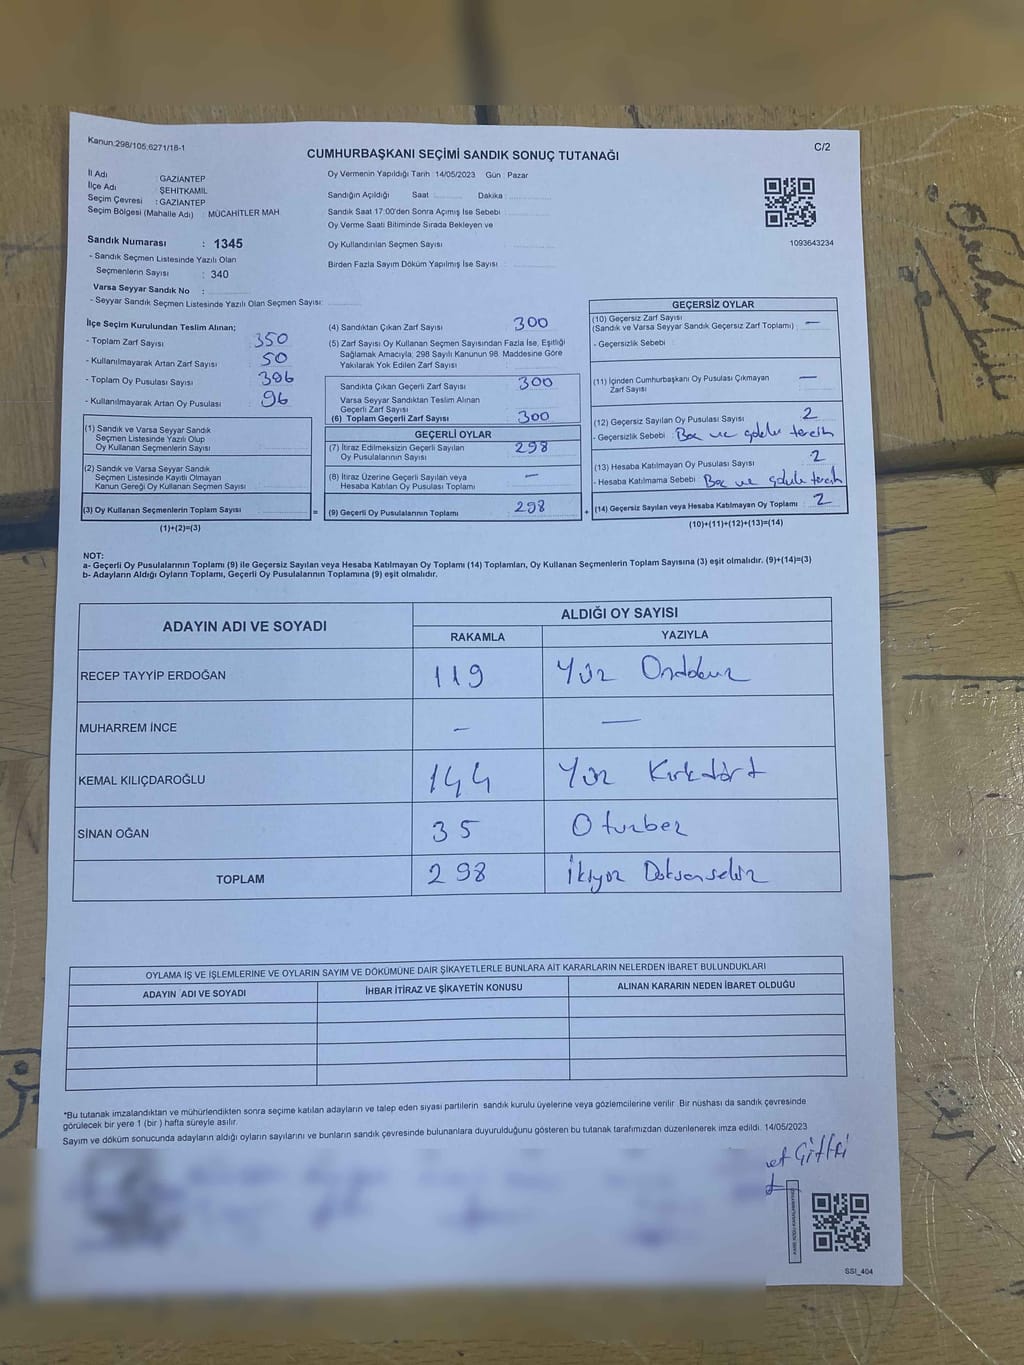 Kanun:298/105;6271/18-1
C/2
CUMHURBAŞKANI SEÇİMİ SANDIK SONUÇ TUTANAĞI
İl Adı : GAZIANTEP
İlçe Adı : ŞEHİTKAMIL
Seçim Çevresi : GAZIANTEP
Seçim Bölgesi (Mahalle Adı) : MÜCAHİTLER MAH
Sandık Numarası : 1345
- Sandık Seçmen Listesinde Yazılı Olan
Seçmenlerin Sayısı : 340
Varsa Seyyar Sandık No :
- Seyyar Sandık Seçmen Listesinde Yazılı Olan Seçmen Sayısı:
Oy Vermenin Yapıldığı Tarih : 14/05/2023 Gün : Pazar
Sandığın Açıldığı Saat Dakika :
Sandık Saat 17:00'den Sonra Açımış İse Sebebi
Oy Verme Saati Bitiminde Sırada Bekleyen ve
Oy Kullandırılan Seçmen Sayısı
Birden Fazla Sayım Döküm Yapılmış İse Sayısı :
1093643234
İlçe Seçim Kurulundan Teslim Alınan;
- Toplam Zarf Sayısı : 350
- Kullanılmayarak Artan Zarf Sayısı : 50
- Toplam Oy Pusulası Sayısı : 396
- Kullanılmayarak Artan Oy Pusulası : 96
(1) Sandık ve Varsa Seyyar Sandık
Seçmen Listesinde Yazılı Olup
Oy Kullanan Seçmenlerin Sayısı
(2) Sandık ve Varsa Seyyar Sandık
Seçmen Listesinde Kayıtlı Olmayan
Kanun Gereği Oy Kullanan Seçmen Sayısı
(3) Oy Kullanan Seçmenlerin Toplam Sayısı =
(1)+(2)=(3)
(4) Sandıktan Çıkan Zarf Sayısı 300
(5) Zarf Sayısı Oy Kullanan Seçmen Sayısından Fazla İse, Eşitliği
Sağlamak Amacıyla; 298 Sayılı Kanunun 98. Maddesine Göre
Yakılarak Yok Edilen Zarf Sayısı
Sandıkta Çıkan Geçerli Zarf Sayısı 300
Varsa Seyyar Sandıktan Teslim Alınan
Geçerli Zarf Sayısı
(6) Toplam Geçerli Zarf Sayısı 300
GEÇERLİ OYLAR
(7) İtiraz Edilmeksizin Geçerli Sayılan
Oy Pusulalarının Sayısı 298
(8) İtiraz Üzerine Geçerli Sayılan veya
Hesaba Katılan Oy Pusulası Toplamı —
(9) Geçerli Oy Pusulalarının Toplamı 298 +
GEÇERSİZ OYLAR
(10) Geçersiz Zarf Sayısı
(Sandık ve Varsa Seyyar Sandık Geçersiz Zarf Toplamı) —
- Geçersizlik Sebebi
(11) İçinden Cumhurbaşkanı Oy Pusulası Çıkmayan
Zarf Sayısı —
(12) Geçersiz Sayılan Oy Pusulası Sayısı 2
- Geçersizlik Sebebi
(13) Hesaba Katılmayan Oy Pusulası Sayısı 2
- Hesaba Katılmama Sebebi
(14) Geçersiz Sayılan veya Hesaba Katılmayan Oy Toplamı 2
(10)+(11)+(12)+(13)=(14)
NOT:
a- Geçerli Oy Pusulalarının Toplamı (9) ile Geçersiz Sayılan veya Hesaba Katılmayan Oy Toplamı (14) Toplamları, Oy Kullanan Seçmenlerin Toplam Sayısına (3) eşit olmalıdır. (9)+(14)=(3)
b- Adayların Aldığı Oyların Toplamı, Geçerli Oy Pusulalarının Toplamına (9) eşit olmalıdır.
ADAYIN ADI VE SOYADI
ALDIĞI OY SAYISI
RAKAMLA YAZIYLA
RECEP TAYYİP ERDOĞAN 119 Yüz Ondokuz
MUHARREM İNCE — —
KEMAL KILIÇDAROĞLU 144 Yüz Kırkdört
SİNAN OĞAN 35 Otuzbeş
TOPLAM 298 İkiyüz Doksansekiz
OYLAMA İŞ VE İŞLEMLERİNE VE OYLARIN SAYIM VE DÖKÜMÜNE DAİR ŞİKAYETLERLE BUNLARA AİT KARARLARIN NELERDEN İBARET BULUNDUKLARI
ADAYIN ADI VE SOYADI İHBAR İTİRAZ VE ŞİKAYETİN KONUSU ALINAN KARARIN NEDEN İBARET OLDUĞU
*Bu tutanak imzalandıktan ve mühürlendikten sonra seçime katılan adayların ve talep eden siyasi partilerin sandık kurulu üyelerine veya gözlemcilerine verilir. Bir nüshası da sandık çevresinde
görülecek bir yere 1 (bir) hafta süreyle asılır.
Sayım ve döküm sonucunda adayların aldığı oyların sayılarını ve bunların sandık çevresinde bulunanlara duyurulduğunu gösteren bu tutanak tarafımızdan düzenlenerek imza edildi. 14/05/2023
SSI_404